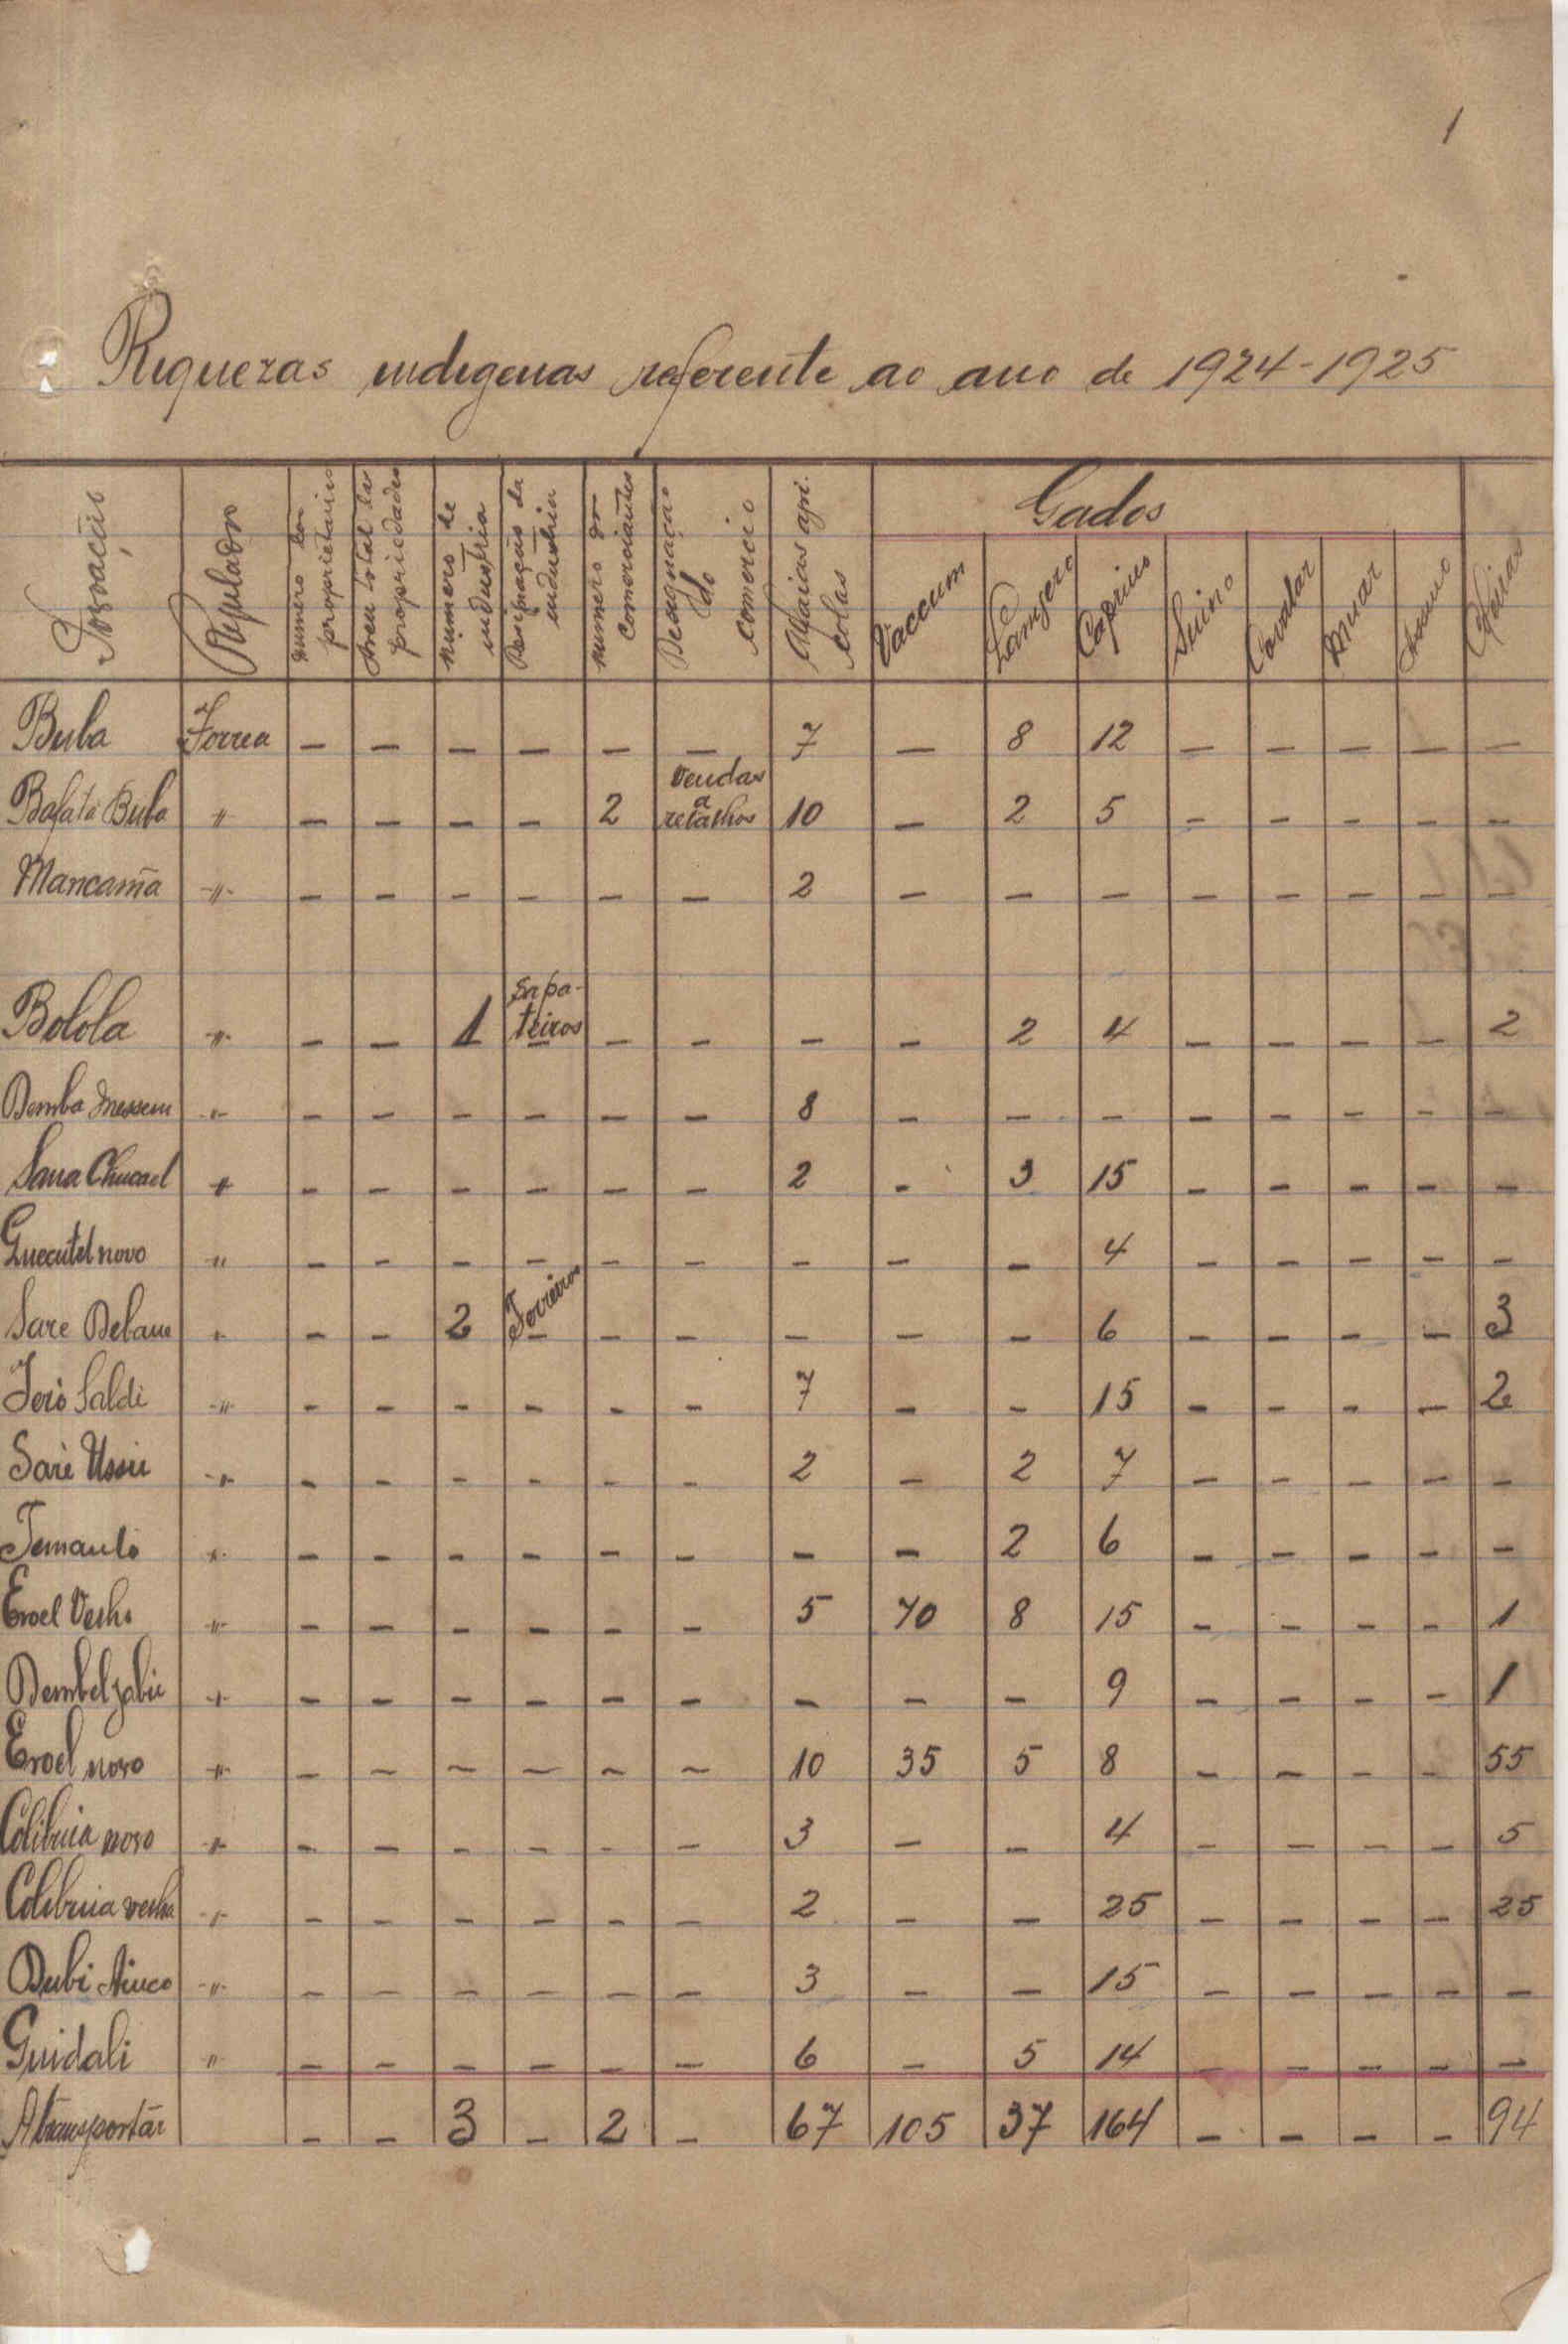 1
Riquezas indigenas referente ao ano de 1924-1925
Povoação Regulados numero dos proprietarios Area total das propriedades numero de industria Designação da industria numero do comerciantes Designação do comercio Alfaias agricolas Gados
Vaccum Lanigero Caprino Suino Cavalar Muar Asinino
Buba Forrea — — — — — — 7 — 8 12 — — — — —
Bafatá Buba " — — — — 2 vendas a retalhos 10 — 2 5 — — — — —
Mancamã " — — — — — — 2 — — — — — — — —
Bolola " — — 1 sapateiros — — — — 2 4 — — — — 2
Demba " — — — — — — 8 — — — — — — — —
Sana Chucael " — — — — — — 2 — 3 15 — — — — —
Guecutel novo " — — — — — — — — — 4 — — — — —
Sare Delaue " — — 2 Ferreiros — — — — — 6 — — — — 3
Jeró Saldi " — — — — — — 7 — — 15 — — — — 2
Sarè Ussu " — — — — — — 2 — 2 7 — — — — —
Temanto " — — — — — — — — 2 6 — — — — —
Eroel Velho " — — — — — — 5 70 8 15 — — — — 1
Dembel " — — — — — — — — — 9 — — — — 1
Eroel novo " — — — — — — 10 35 5 8 — — — — 55
Colibuia novo " — — — — — — 3 — — 4 — — — — 5
Colibuia velha " — — — — — — 2 — — 25 — — — — 25
Dubi " — — — — — — 3 — — 15 — — — — —
Guidali " — — — — — — 6 — 5 14 — — — — —
A transportár — — 3 — 2 — 67 105 37 164 — — — — 94